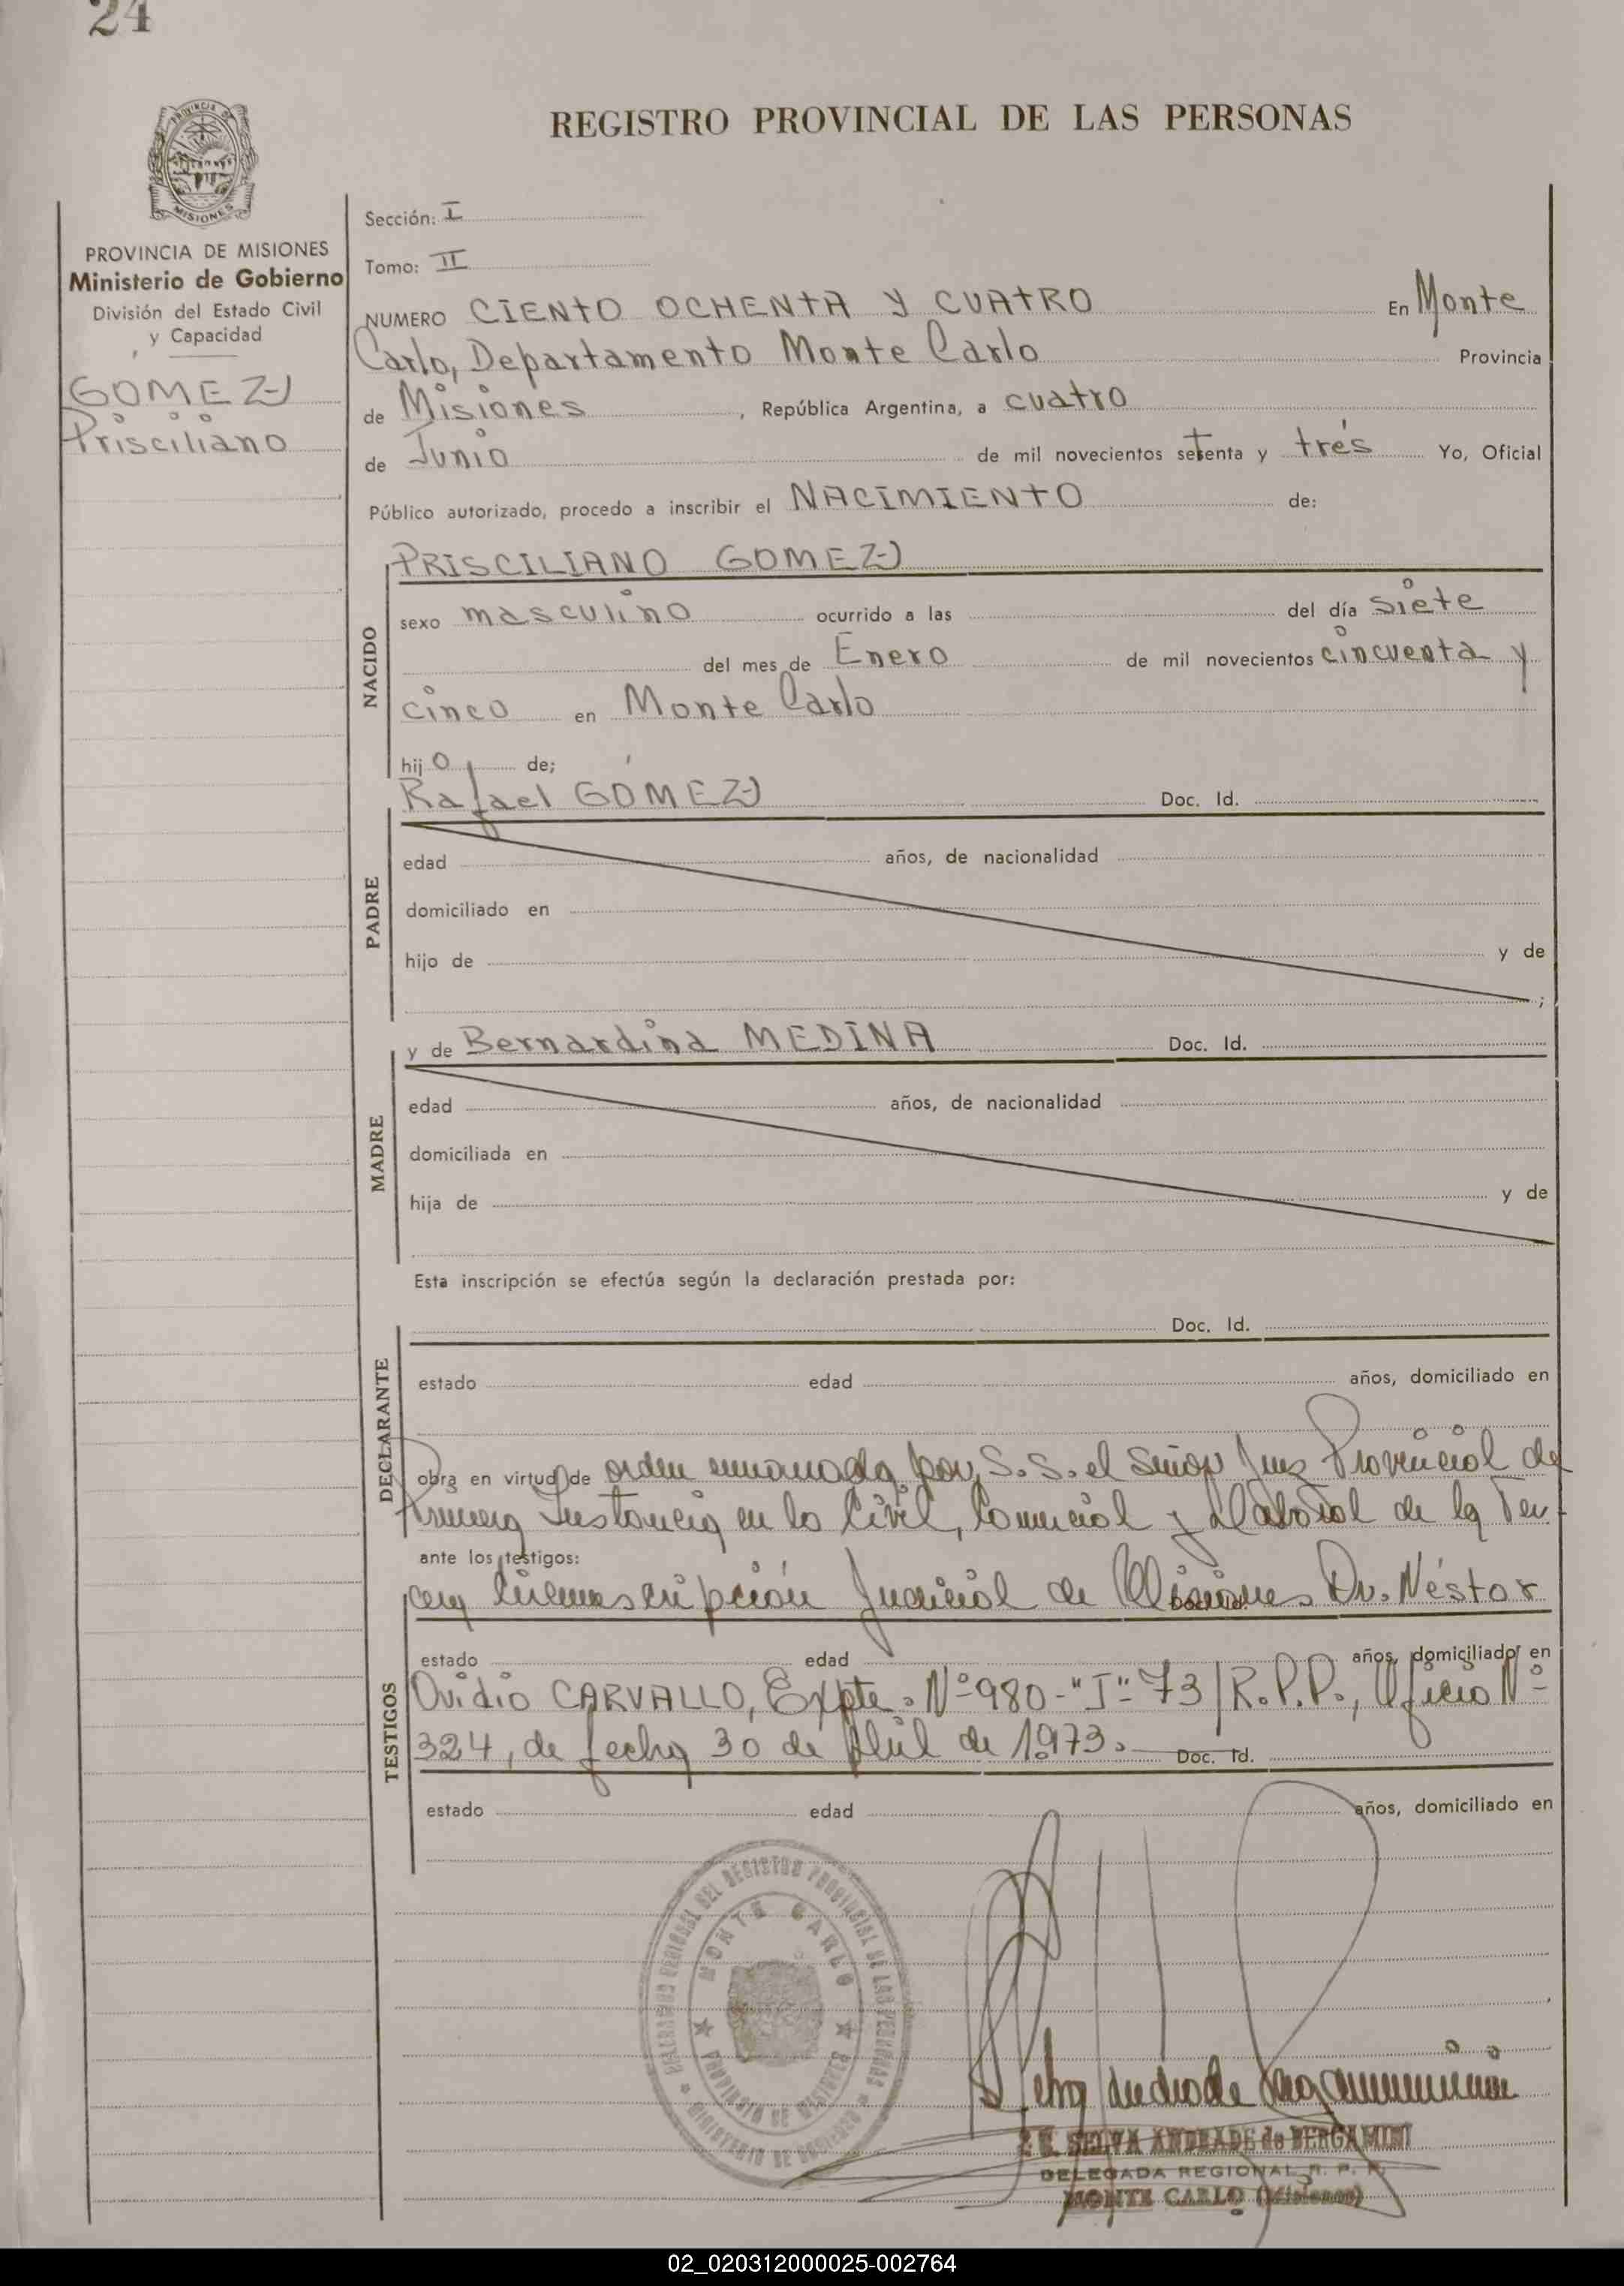 24
PROVINCIA DE
MISIONES
REGISTRO PROVINCIAL DE LAS PERSONAS
PROVINCIA DE MISIONES
Ministerio de Gobierno
División del Estado Civil
y Capacidad
GOMEZ
Prisciliano
Sección: I
Tomo: II
NUMERO CIENTO OCHENTA Y CUATRO En Monte
Carlo, Departamento Monte Carlo Provincia
de Misiones, República Argentina, a cuatro
de Junio de mil novecientos setenta y trés Yo, Oficial
Público autorizado, procedo a inscribir el NACIMIENTO de:
NACIDO
PRISCILIANO GOMEZ
sexo masculino ocurrido a las del día siete
del mes de Enero de mil novecientos cincuenta y
cinco en Monte Carlo
hijo de;
PADRE
Rafael GÓMEZ Doc. Id.
edad años, de nacionalidad
domiciliado en
hijo de y de
;
MADRE
y de Bernardina MEDINA Doc. Id.
edad años, de nacionalidad
domiciliada en
hija de y de
Esta inscripción se efectúa según la declaración prestada por:
DECLARANTE
Doc. Id.
estado edad años, domiciliado en
obra en virtud de orden emanada por S.S. el Señor Juez Provincial de
Primera Instancia en lo Civil, Comercial y Laboral de la Ter-
ante los testigos:
TESTIGOS
cera Circunscripción Judicial de Misiones Dr. Néstor
estado edad años, domiciliado en
Ovidio CARVALLO, Expte. Nº 980-"I"-73/R.P.P., Oficio Nº
324, de fecha 30 de Abril de 1973. Doc. Id.
estado edad años, domiciliado en
DELEGACION REGIONAL DEL REGISTRO PROVINCIAL DE LAS PERSONAS
MONTE CARLO
PROVINCIA DE MISIONES
MINISTERIO DE GOBIERNO
SELVA ANDRADE de BERGAMINI
DELEGADA REGIONAL R. P. P.
MONTE CARLO (Misiones)
02_020312000025-002764